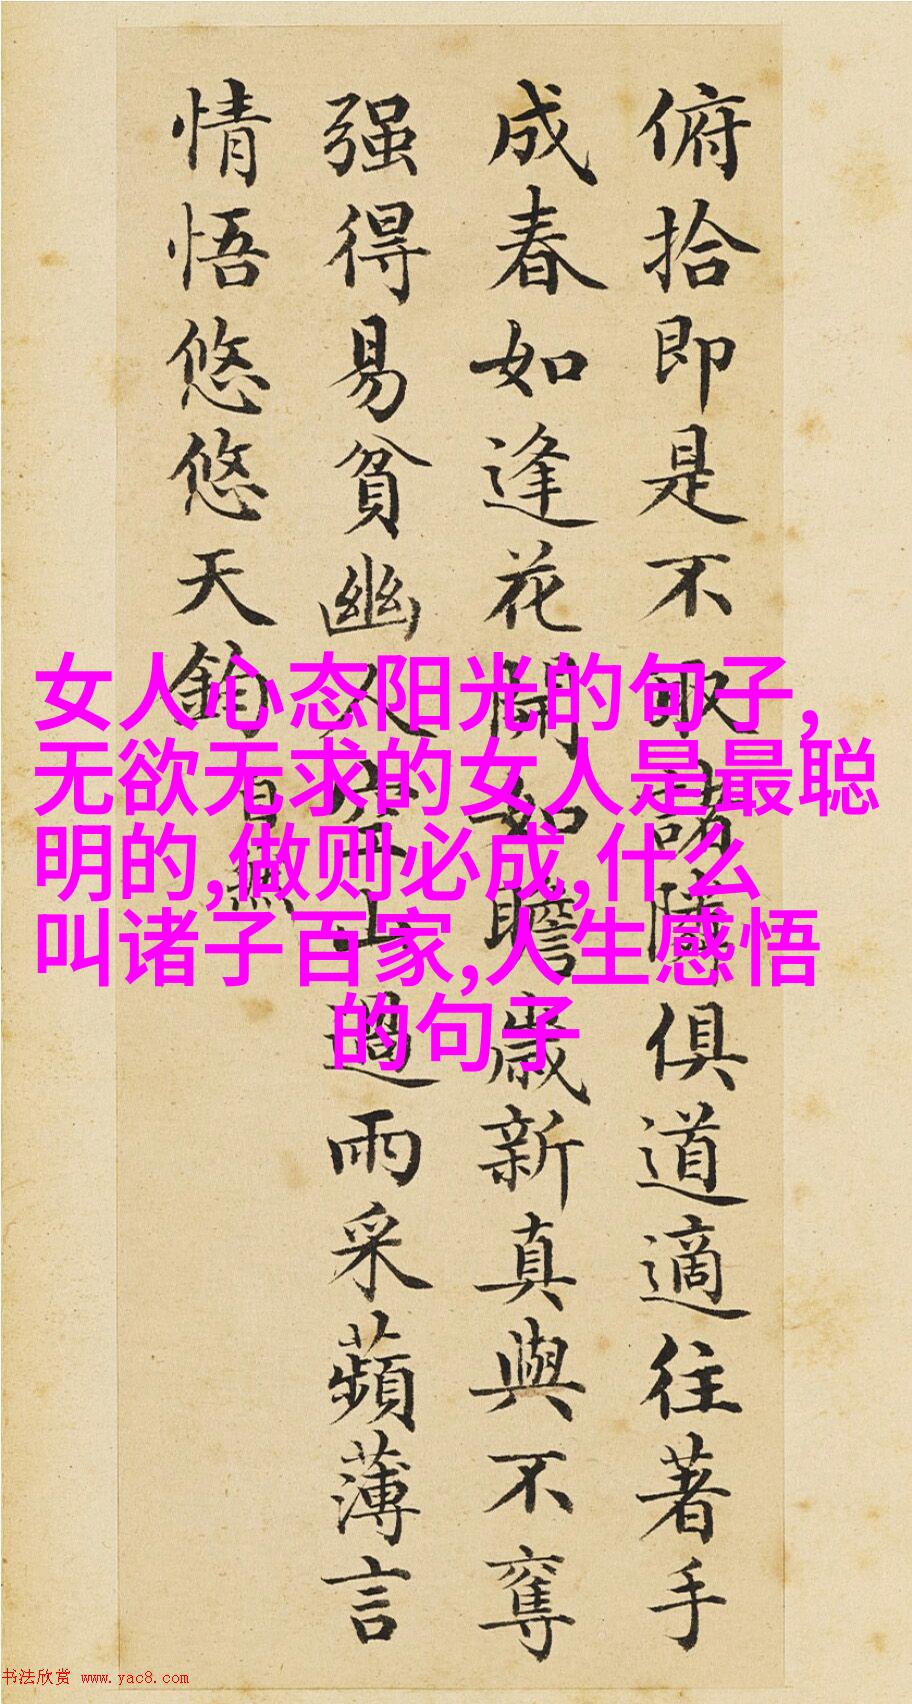 俯拾即是不取諸隣俱道適往著手
成春如逢花開如瞻歲新真與不奪
强得易貧幽人空山過雨采蘋薄言
情悟悠悠天鈞
女人心态阳光的句子,
无欲无求的女人是最聪
明的,做则必成,什么
叫诸子百家,人生感悟
的句子
书法欣赏 www.yac8.com